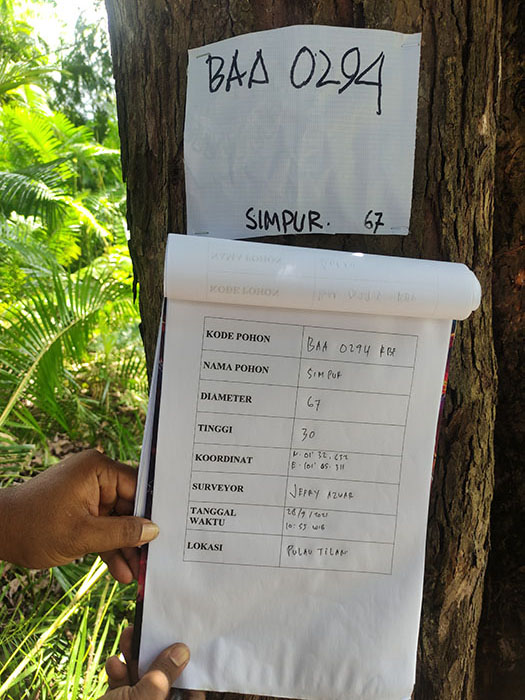 BAA 0294
SIMPUR. 67
NAMA POHON
KODE POHON
KODE POHON BAA 0294 KBR
NAMA POHON SIMPUR
DIAMETER 67
TINGGI 30
KOORDINAT N: 01° 32. 652
E: 101° 05. 311
SURVEYOR JEFRY AZUAR
TANGGAL 28/9/2021
WAKTU 10:53 WIB
LOKASI PULAU TILAN